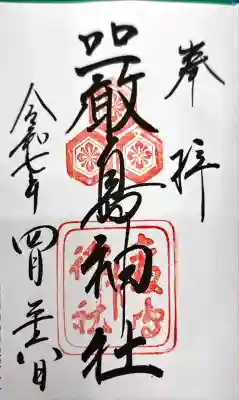 奉拝
嚴島神社
嚴島
神社
令和七年四月二十八日